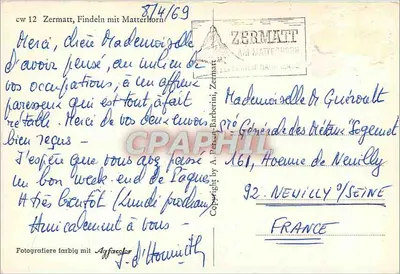 cw 12 Zermatt, Findeln mit Matterhorn
8/4/69
Merci, chère Mademoiselle
d'avoir pensé, au milieu de
vos occupations, à un affreux
paresseux qui est tout à fait
rétabli. Merci de vos deux envois
bien reçus -
J'espère que vous avez passé
un bon week-end de Pâques
A très bientôt (lundi prochain)
Amicalement à vous -
Fotografiere farbig mit Agfacolor
Copyright by A. Perren-Barberini, Zermatt
ZERMATT
AM MATTERHORN
Mademoiselle de Guéroult
Générale des Métaux Sogemet
161, Avenue de Neuilly
92. NEUILLY S/SEINE
FRANCE
CPAPHIL